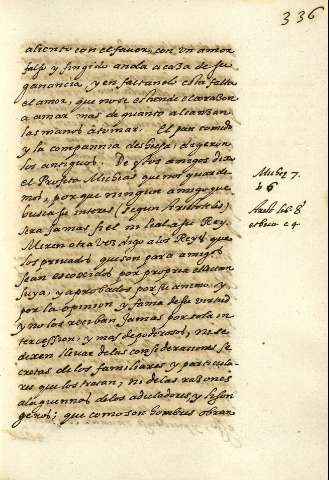 336
aliento con el favor, con un amor
falso y fingido anda a caza de su
ganancia y en faltando esta falta
el amor, que no se estiende el corazon
a amar mas de quanto alcanzan
las manos a tomar. El pan comido
y la compannia deshecha, dezian
los antiguos. De estos amigos dixo
el Profeta Micheas que nos guarde
mos, porque ningun amigo que
busca su interes (segun Aristoteles)
sera jamas fiel ni leal a su Rey.
Miren otra vez digo a los Reyes que
los privados que son para amigos
sean escogidos por propria eleccion
suya, y aprobados por su animo y
por la opinion y fama de su virtud
y no los reciban jamas por sola in
tercession, y mas de poderosos, ni se
dexen llevar de las consideraciones se
cretas de los familiares y particula
res que los tratan, ni de las razones
alagueñas de los aduladores y lison
geros; que como son hombres obran
Miche 7.
6
Arist lib. 8
c 4